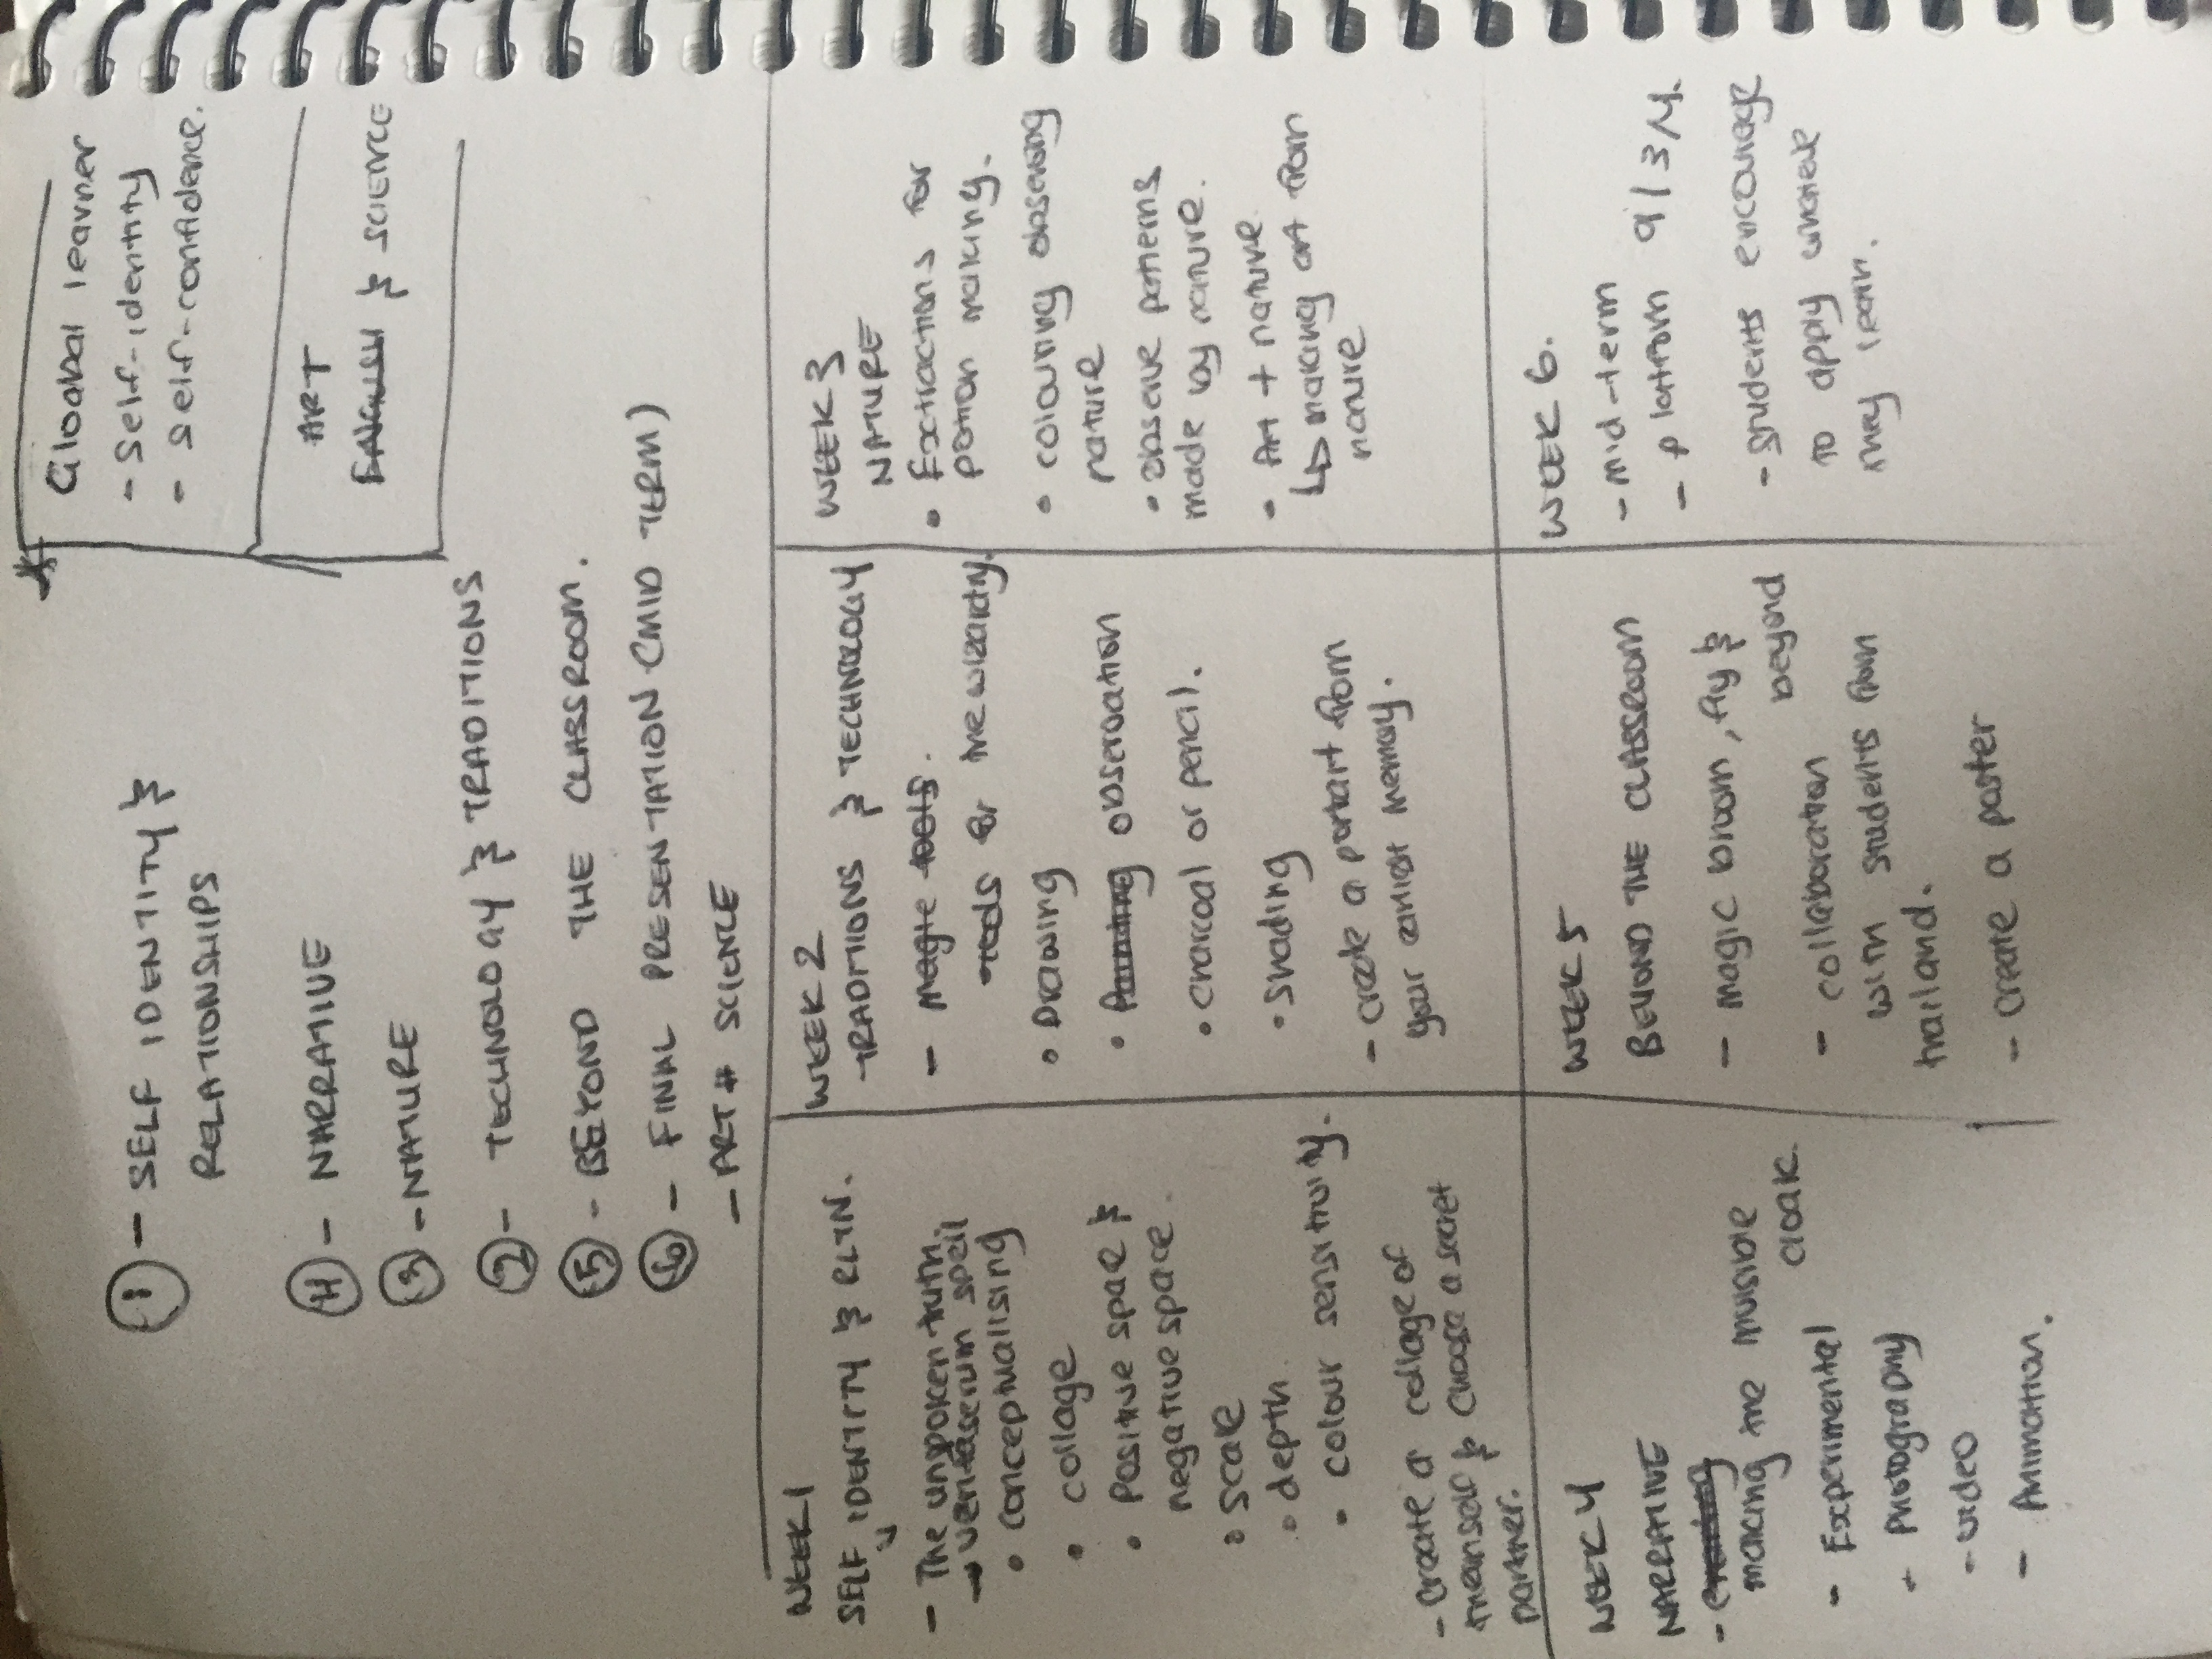 ① - SELF IDENTITY &
RELATIONSHIPS
④ - NARRATIVE
③ - NATURE
② - TECHNOLOGY & TRADITIONS
⑤ - BEYOND THE CLASSROOM.
⑥ - FINAL PRESENTATION (MID TERM)
- ART # SCIENCE
Gloabal learner
- Self-identity
- Self-confidence.
ART
ENGLISH & SCIENCE
WEEK 1
SELF IDENTITY & RLTN.
- The unspoken truth.
→ veritaserum spell
• conceptualising
• collage
• Positive space &
negative space.
• scale
• depth
• colour sensitivity.
- create a collage of
themself & choose a secret
partner.
WEEK 2
TRADITIONS & TECHNOLOGY
- magic tools.
tools for the wizardry.
• Drawing
• Painting observation
• charcoal or pencil.
• shading
- create a portart from
your earliest memory.
WEEK 3
NATURE
• Extractions for
potion making.
• colouring observing
nature
• observe patterns
made by nature.
• Art + nature
↳ making art from
nature
WEEK 4
NARRATIVE
-
making the invisible
cloak.
- Experimental
- Photography
- video
- Animation.
WEEK 5
BEYOND THE CLASSROOM
- magic broom, fly &
beyond
- collaboration
with students from
thailand.
- create a poster
WEEK 6.
- mid-term
- platform 9/3/4.
- students encourage
to apply whatever
they learn.